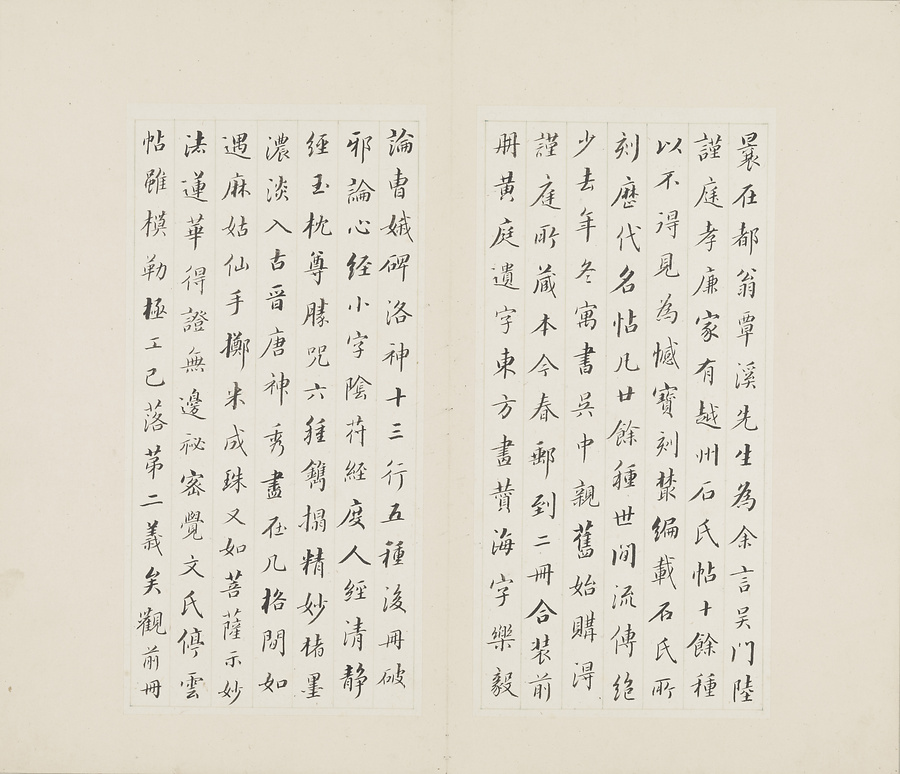 曩在都翁覃溪先生為余言吴門陸
謹庭孝廉家有越州石氏帖十餘種
以不得見為憾寶刻叢編載石氏所
刻歷代名帖凡廿餘種世間流傳絕
少去年冬寓書吴中親舊始購得
謹庭所藏本今春郵到二冊合装前
冊黄庭遺字東方畫賛海字樂毅
論曹娥碑洛神十三行五種後冊破
邪論心經小字陰符經度人經清靜
經玉枕尊勝咒六種鐫搨精妙楮墨
濃淡入古晋唐神秀盡在几格間如
遇麻姑仙手擲米成珠又如菩薩示妙
法蓮華得證無邊祕密覺文氏停雲
帖雖模勒極工已落第二義矣觀前冊